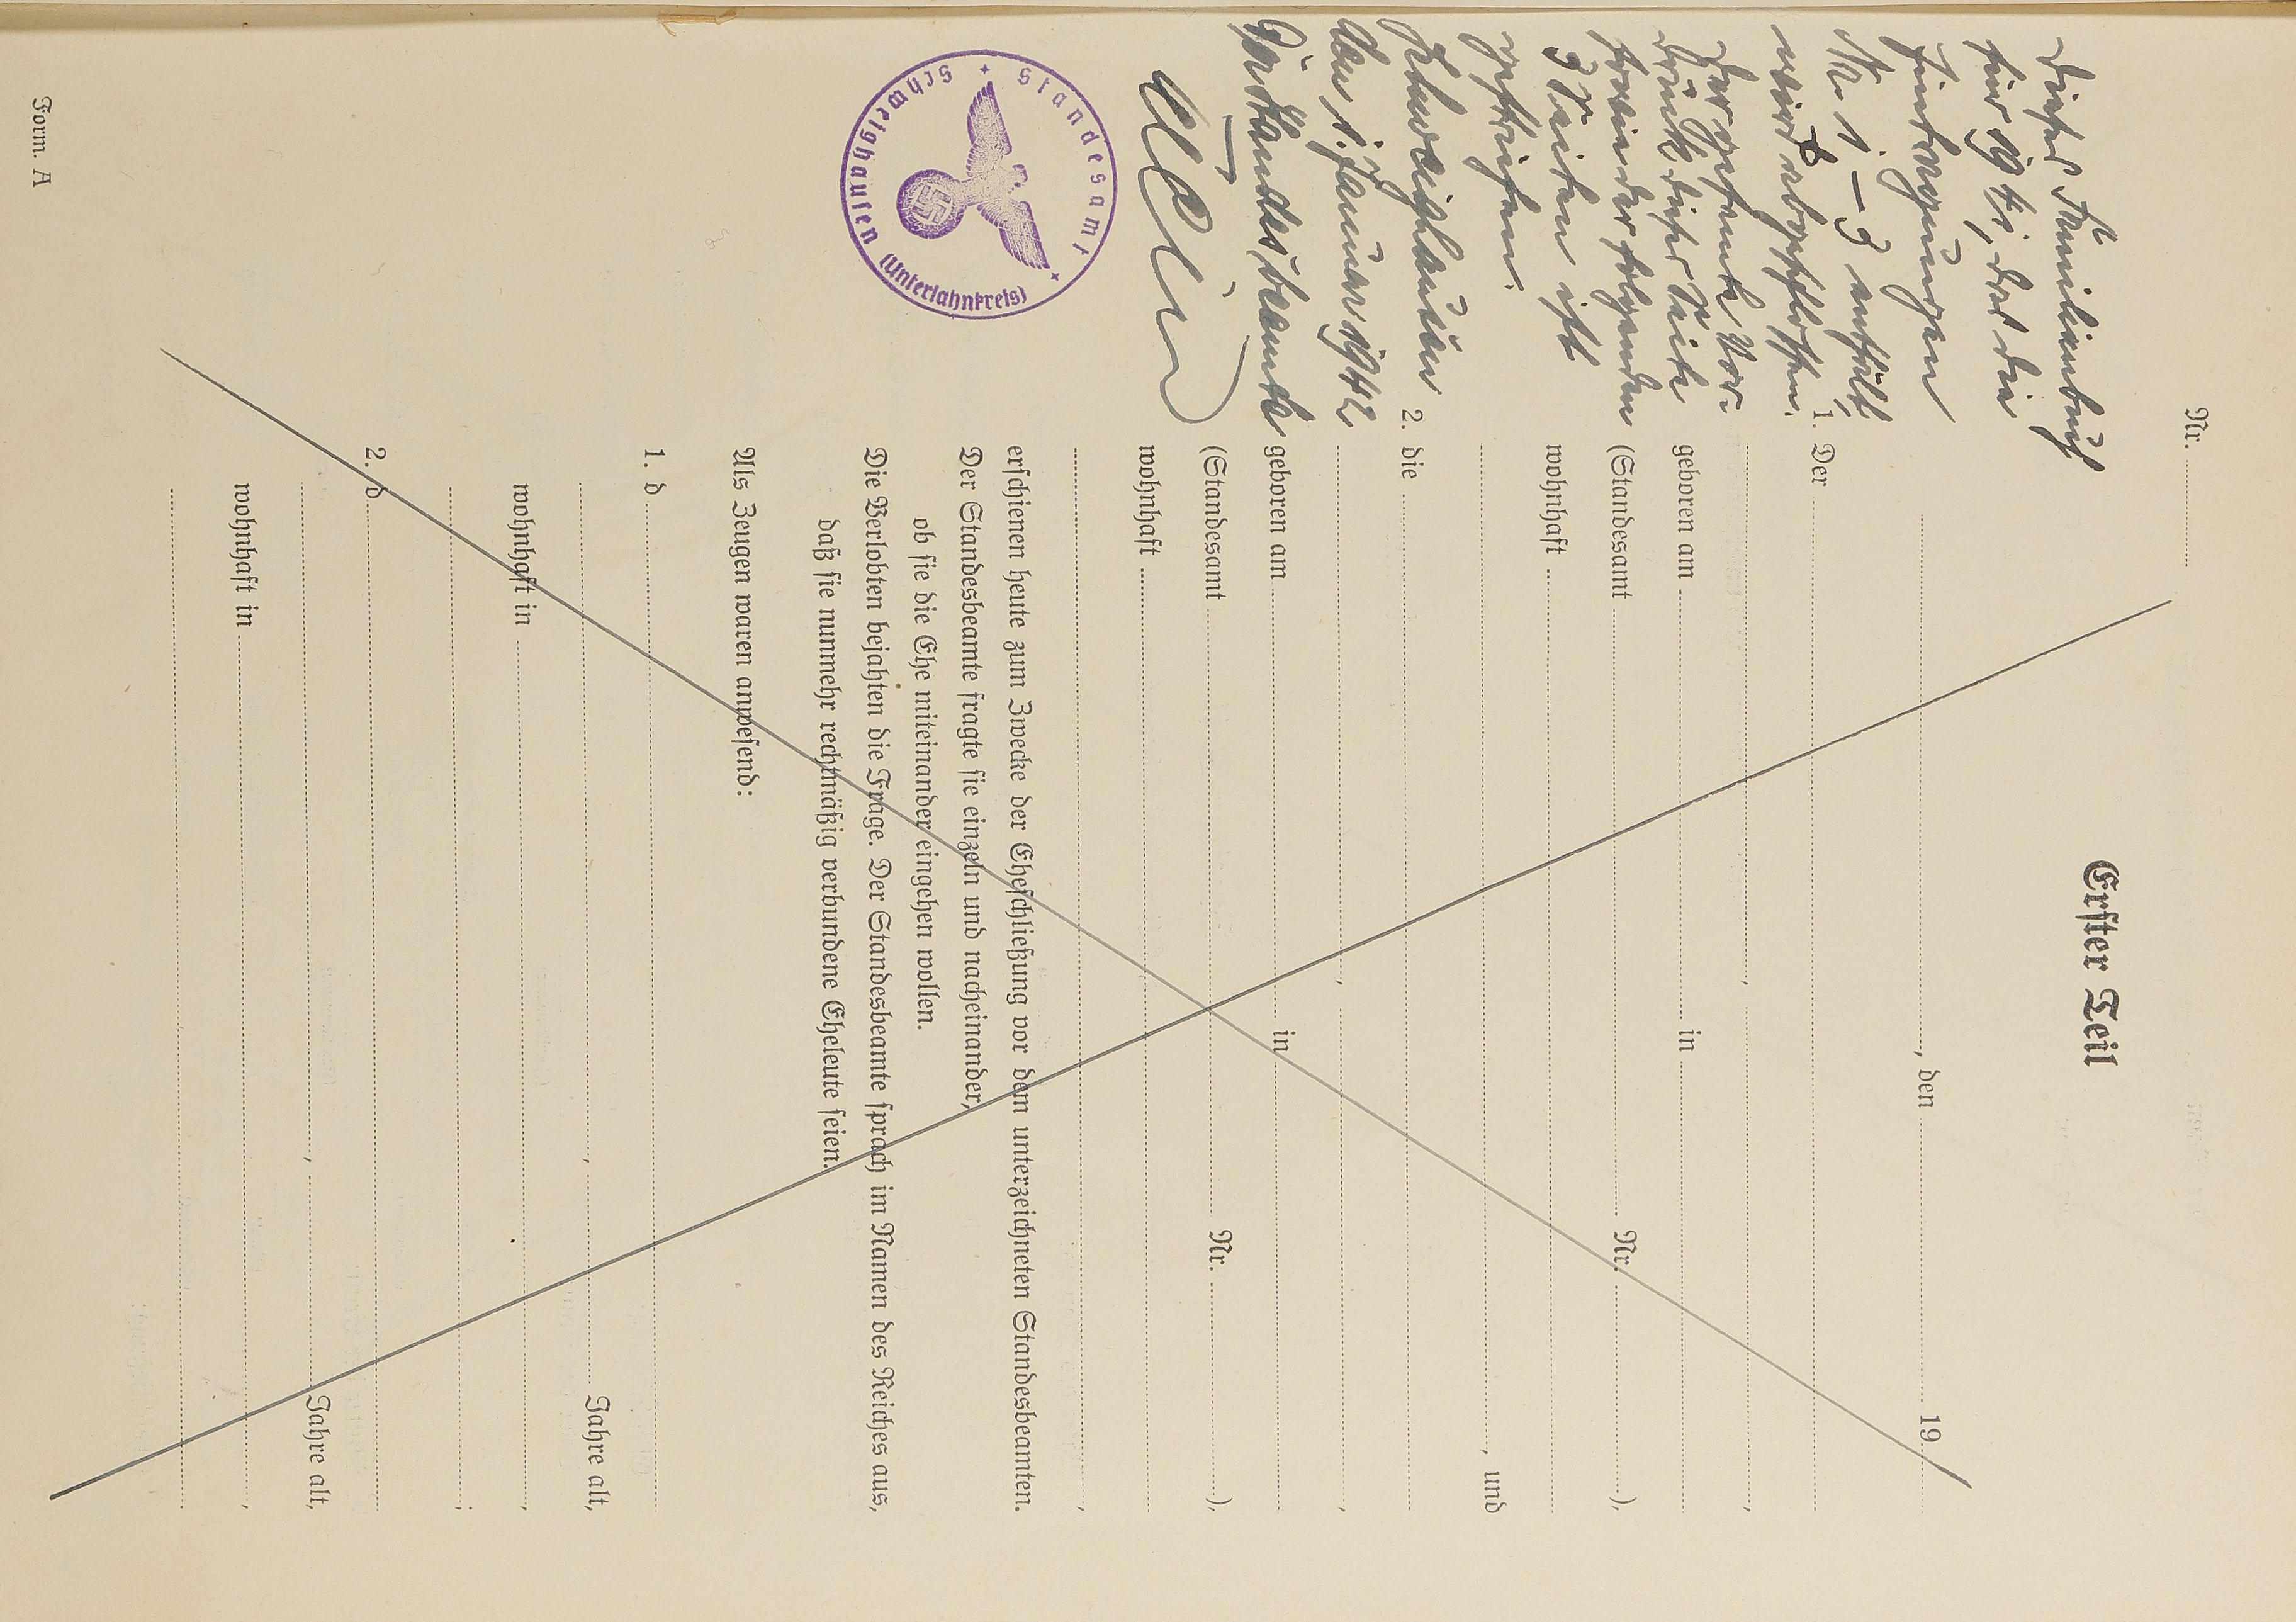 Nr.
Erster Teil
Dieses Familienbuch
für 1941, das die
Eintragungen
Nr. 1 – 3 enthält,
wird abgeschlossen.
Der gesamte Vor-
druck dieser Seite
sowie der folgenden
3 Seiten ist
gestrichen.
Schweighausen
den 1. Januar 1942
Der Standesbeamte
Standesamt
Schweighausen
(Unterlahnkreis)
, den 19
1. Der
,
geboren am in
(Standesamt Nr. ),
wohnhaft
, und
2. die
, ,
geboren am in
(Standesamt Nr. ),
wohnhaft
,
erschienen heute zum Zwecke der Eheschließung vor dem unterzeichneten Standesbeamten.
Der Standesbeamte fragte sie einzeln und nacheinander,
ob sie die Ehe miteinander eingehen wollen.
Die Verlobten bejahten die Frage. Der Standesbeamte sprach im Namen des Reiches aus,
daß sie nunmehr rechtmäßig verbundene Eheleute seien.
Als Zeugen waren anwesend:
1. d
, Jahre alt,
wohnhaft in ,
;
2. d
, Jahre alt,
wohnhaft in ,
.
Form. A